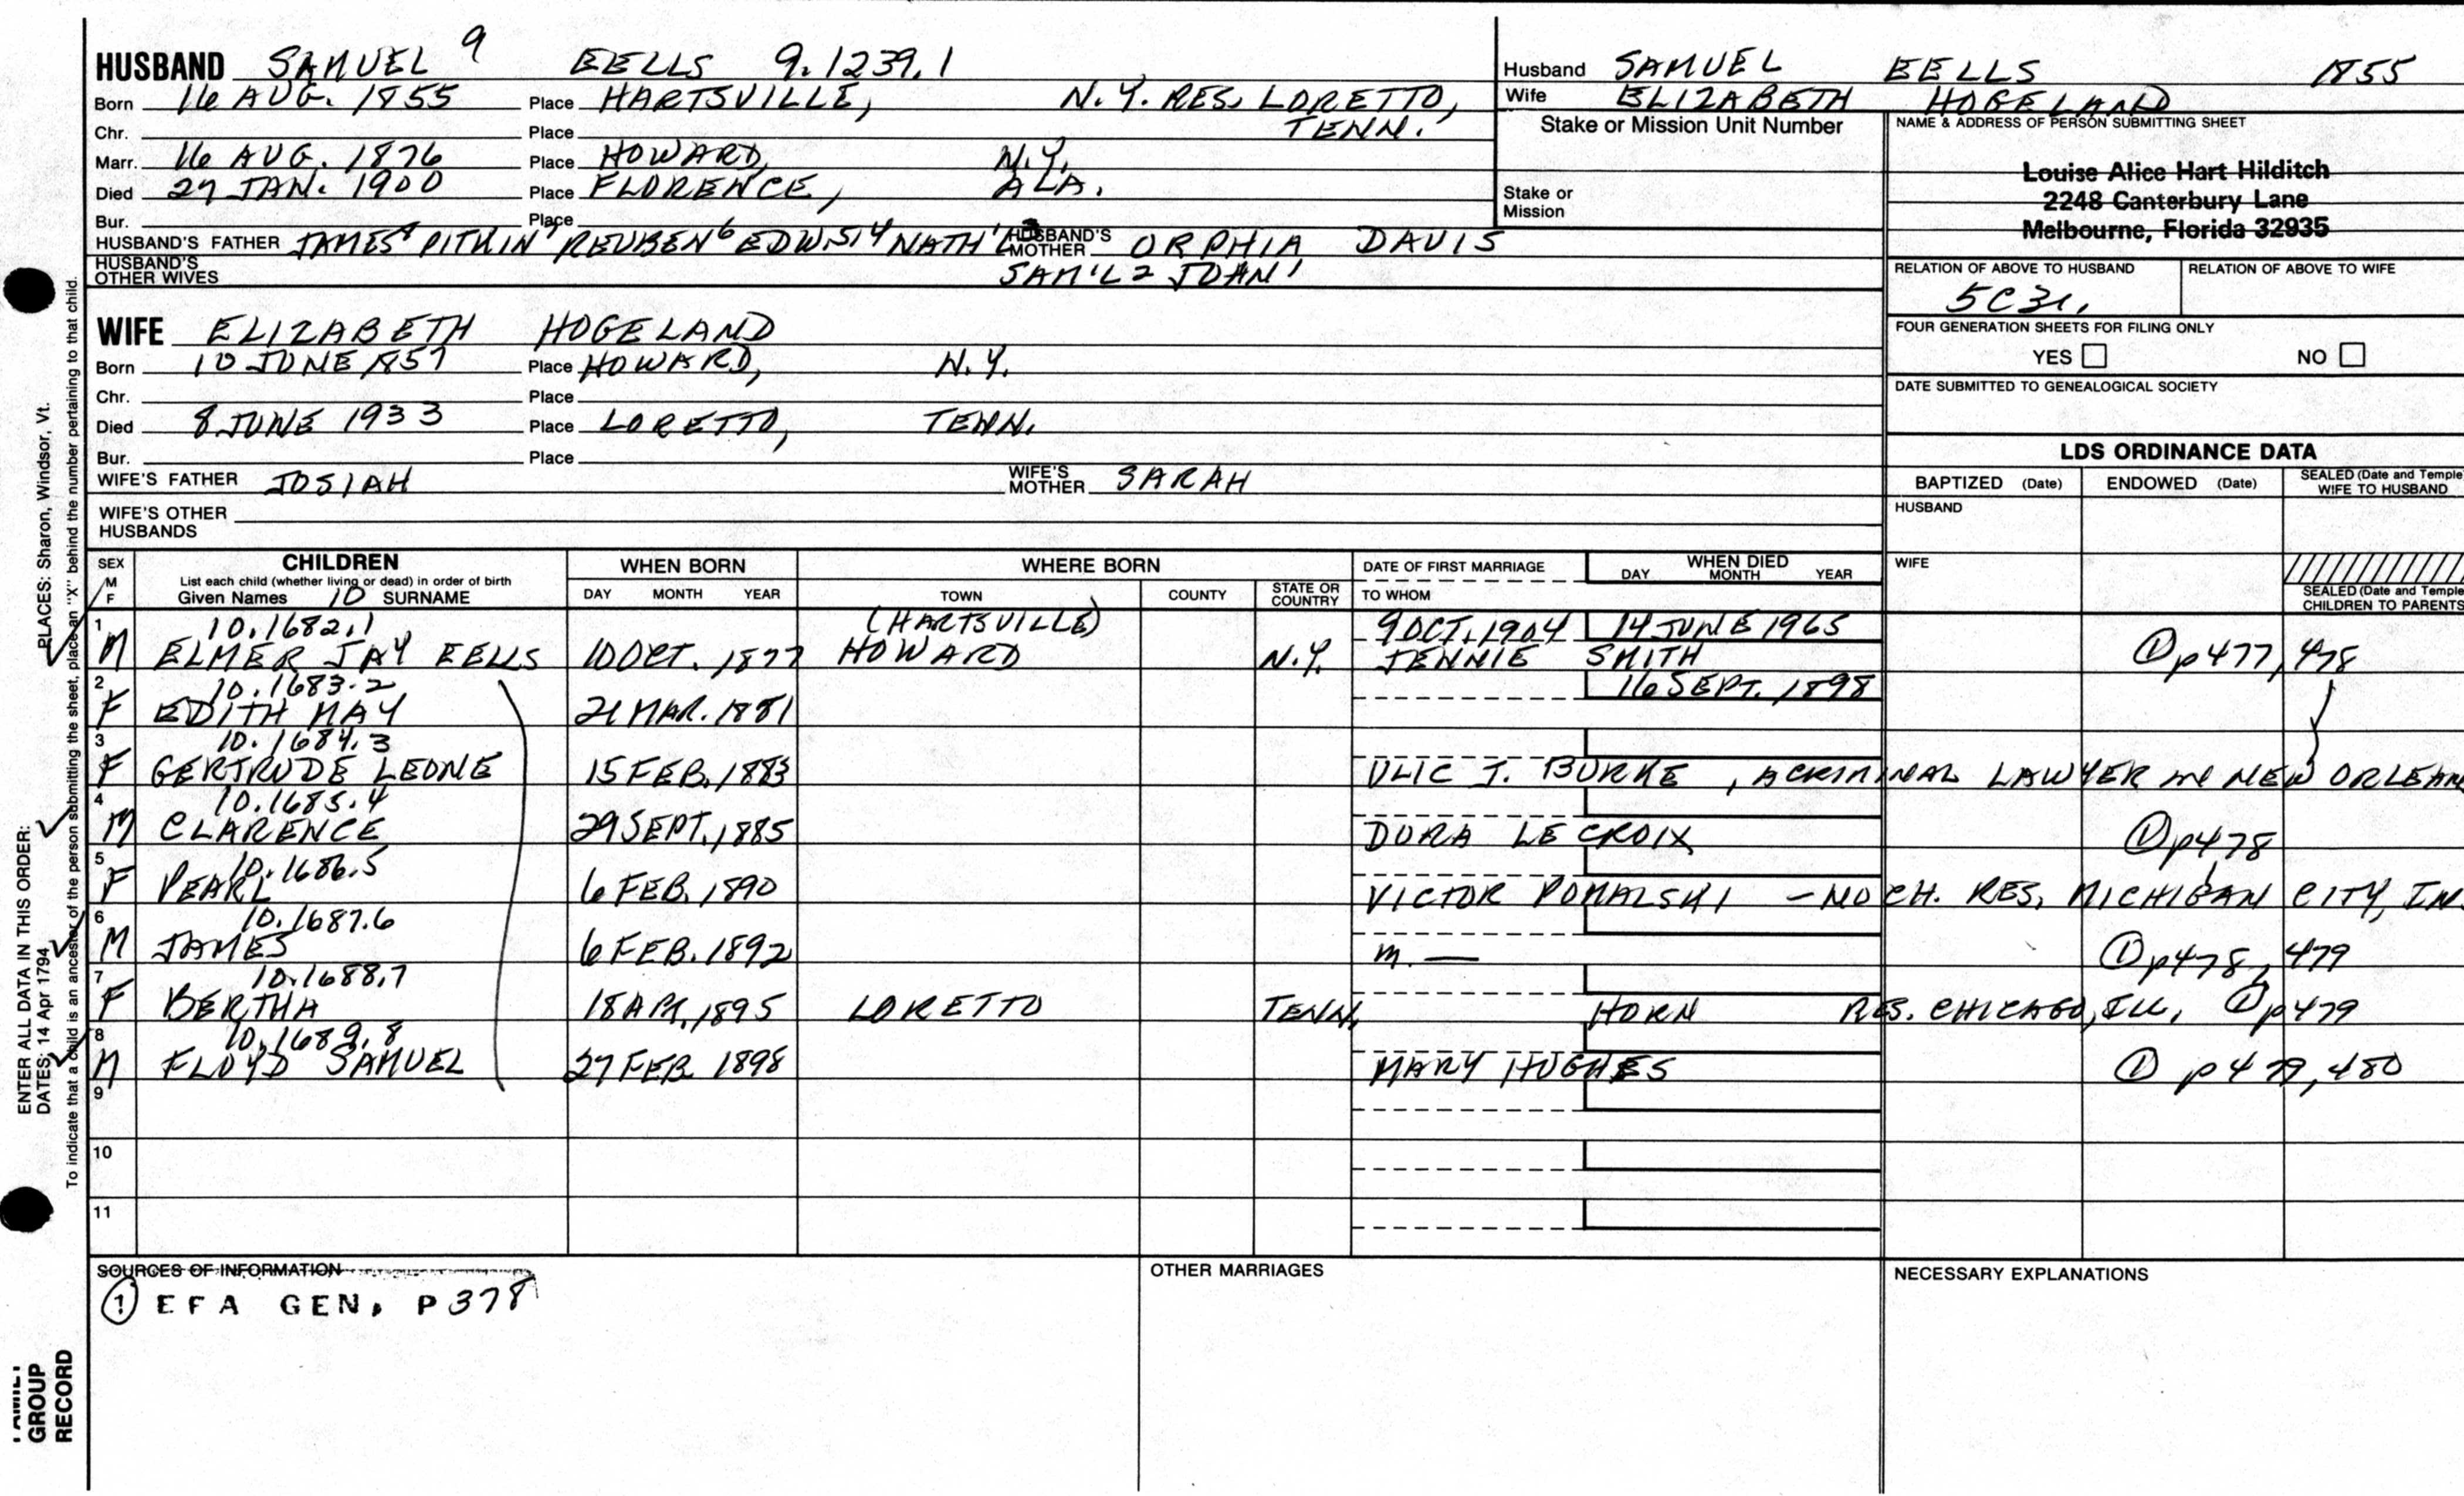 HUSBAND SAMUEL 9 EELLS 9.1239.1
Born 16 AUG. 1855 Place HARTSVILLE, N.Y. RES. LORETTO, TENN.
Chr. Place
Marr. 16 AUG. 1876 Place HOWARD, N.Y.
Died 27 JAN. 1900 Place FLORENCE, ALA.
Bur. Place
HUSBAND'S FATHER JAMES 8 PITKIN 7 REUBEN 6 EDW 5 4 NATH'L 3 HUSBAND'S MOTHER ORPHIA DAVIS
HUSBAND'S OTHER WIVES SAM'L 2 JOHN 1
WIFE ELIZABETH HOGELAND
Born 10 JUNE 1857 Place HOWARD, N.Y.
Chr. Place
Died 8 JUNE 1933 Place LORETTO, TENN.
Bur. Place
WIFE'S FATHER JOSIAH WIFE'S MOTHER SARAH
WIFE'S OTHER HUSBANDS
Husband SAMUEL EELLS 1855
Wife ELIZABETH HOGELAND
Stake or Mission Unit Number
Stake or Mission
NAME & ADDRESS OF PERSON SUBMITTING SHEET
Louise Alice Hart Hilditch
2248 Canterbury Lane
Melbourne, Florida 32935
RELATION OF ABOVE TO HUSBAND RELATION OF ABOVE TO WIFE
5C3r.
FOUR GENERATION SHEETS FOR FILING ONLY
YES NO
DATE SUBMITTED TO GENEALOGICAL SOCIETY
LDS ORDINANCE DATA
BAPTIZED (Date) ENDOWED (Date) SEALED (Date and Temple WIFE TO HUSBAND
HUSBAND
WIFE
SEALED (Date and Temple CHILDREN TO PARENTS
SEX M F CHILDREN WHEN BORN WHERE BORN DATE OF FIRST MARRIAGE WHEN DIED
List each child (whether living or dead) in order of birth
Given Names 10 SURNAME DAY MONTH YEAR TOWN COUNTY STATE OR COUNTRY TO WHOM DAY MONTH YEAR
1 10.1682.1 (HARTSVILLE) 9 OCT. 1904 14 JUNE 1965
M ELMER JAY EELLS 10 OCT. 1877 HOWARD N.Y. JENNIE SMITH ① p477, 478
2 10.1683.2 16 SEPT. 1898
F EDITH MAY 21 MAR. 1881
3 10.1684.3
F GERTRUDE LEONE 15 FEB. 1883 ULIC J. BURKE, A CRIMINAL LAWYER in NEW ORLEAN
4 10.1685.4
M CLARENCE 29 SEPT. 1885 DORA LE CROIX ① p478
5 10.1686.5
F PEARL 6 FEB. 1890 VICTOR ROMALSKI - NO CH. RES. MICHIGAN CITY, IN
6 10.1687.6
M JAMES 6 FEB. 1892 m. — ① p478, 479
7 10.1688.7
F BERTHA 18 APR. 1895 LORETTO TENN. HORN RES. CHICAGO, ILL. ① p479
8 10.1689.8
M FLOYD SAMUEL 27 FEB 1898 MARY HUGHES ① p479, 480
9
10
11
SOURCES OF INFORMATION OTHER MARRIAGES NECESSARY EXPLANATIONS
① EFA GEN. P378
ENTER ALL DATA IN THIS ORDER: PLACES: Sharon, Windsor, Vt.
DATES: 14 Apr 1794
To indicate that a child is an ancestor of the person submitting the sheet, place an "X" behind the number pertaining to that child.
FAMILY GROUP RECORD